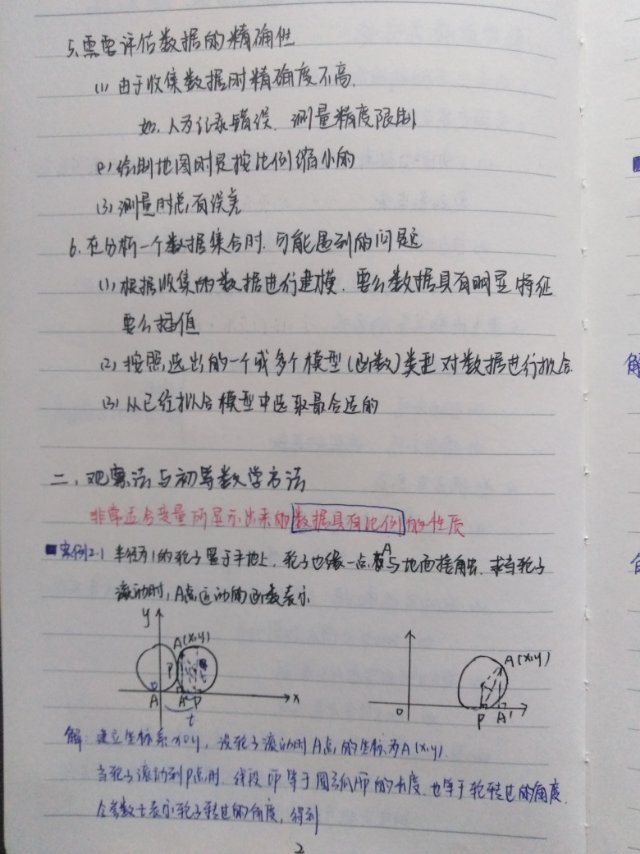 5、需要评估数据的精确性
(1) 由于收集数据时精确度不高.
如,人为记录错误、测量精度限制
(2) 绘制地图时是按比例缩小的
(3) 测量时总有误差
6、在分析一个数据集合时,可能遇到的问题
(1) 根据收集的数据进行建模,要么数据具有明显特征
要么插值
(2) 按照选出的一个或多个模型(函数)类型对数据进行拟合.
(3) 从已经拟合模型中选取最合适的
二、观察法与初等数学方法
非常适合变量所显示出来的数据具有比例的性质
■案例2-1 半径为1的轮子置于平地上,轮子边缘一点A与地面接触,求当轮子
滚动时,A点运动的函数表示
y
A(x,y)
P
0
A A' P
x
t
A(x,y)
0
P A'
解:建立坐标系xoy,设轮子滚动时A点的坐标为A(x,y)
当轮子滚动到P点时,线段OP等于圆弧AP的长度,也等于轮转过的角度.
令参数t表示轮子转过的角度,得到
2
解
■